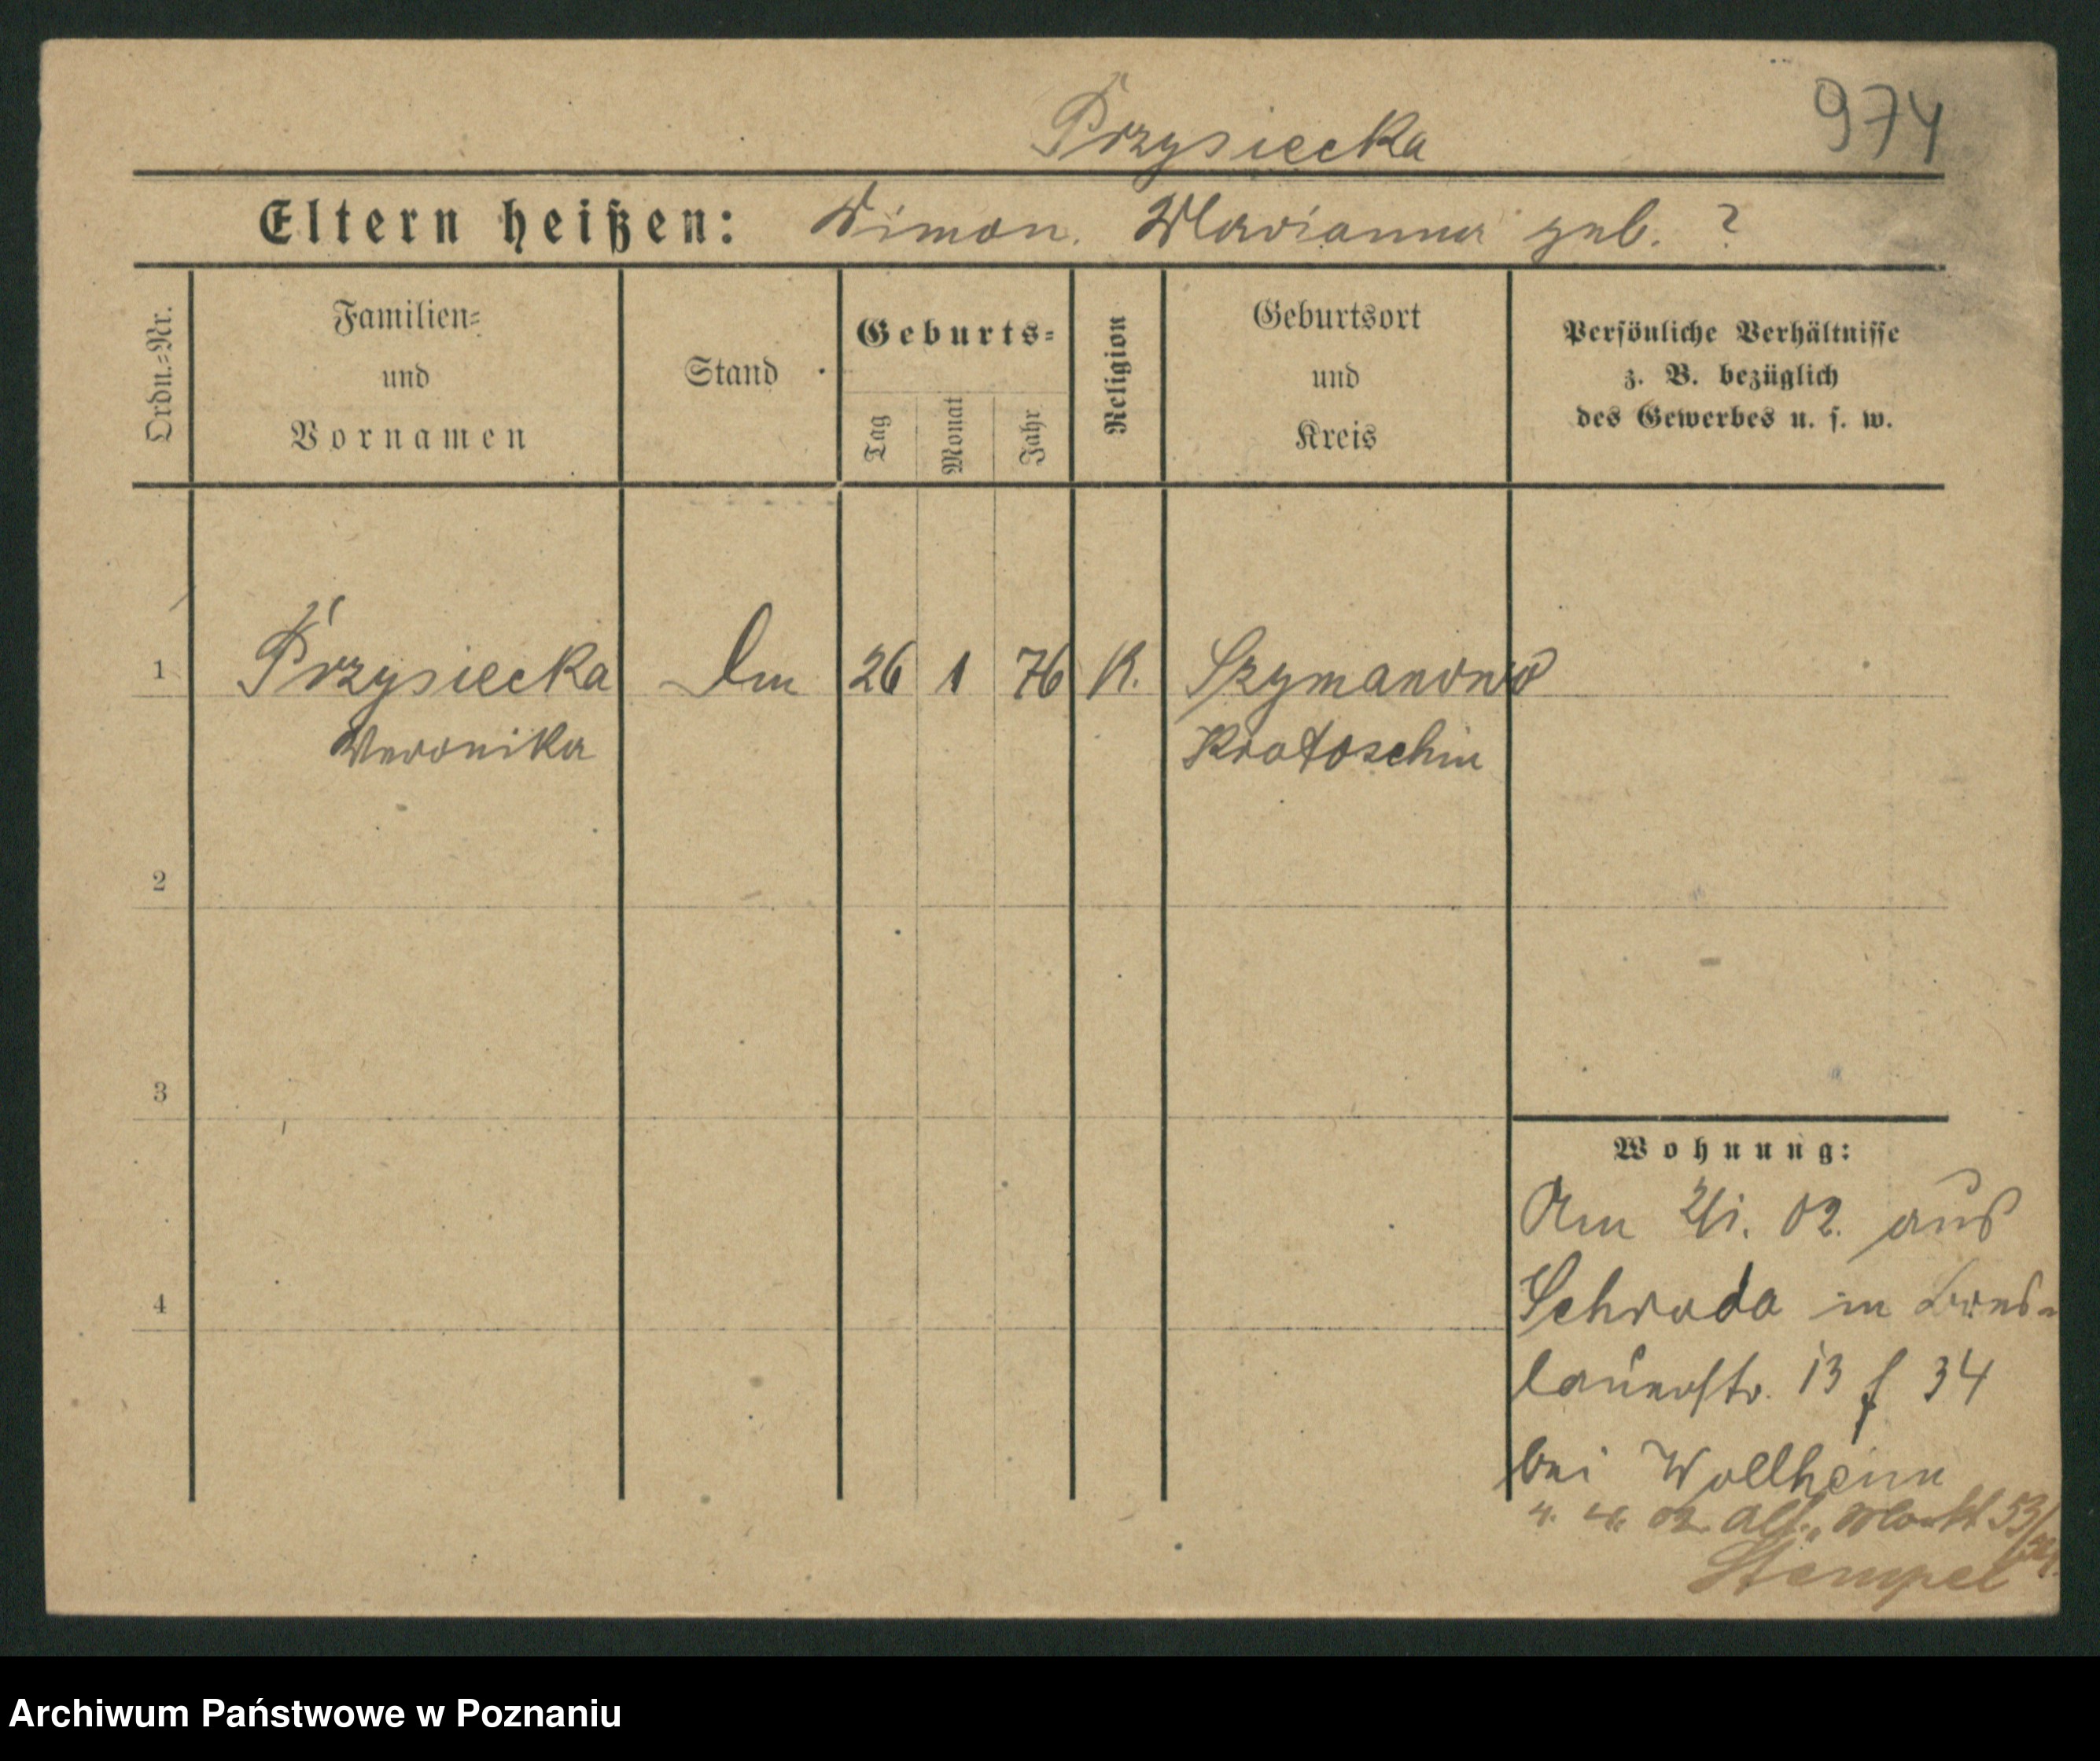 Przysiecka 974
Eltern heißen: Simon. Marianna geb. ?
Ordn.=Nr.
Familien=
und
Vornamen
Stand
Geburts=
Tag
Monat
Jahr
Religion
Geburtsort
und
Kreis
Persönliche Verhältnisse
z. B. bezüglich
des Gewerbes u. s. w.
1 Przysiecka 26 1 76 K. Szymanowo
Veronika Krotoschin
2
3
4
Wohnung:
Am 2/1. 02. aus
Schroda in Bres-
lauerstr. 13 34
bei Wollheim
4. 02. Alt. Markt 53/
Stempel
Archiwum Państwowe w Poznaniu